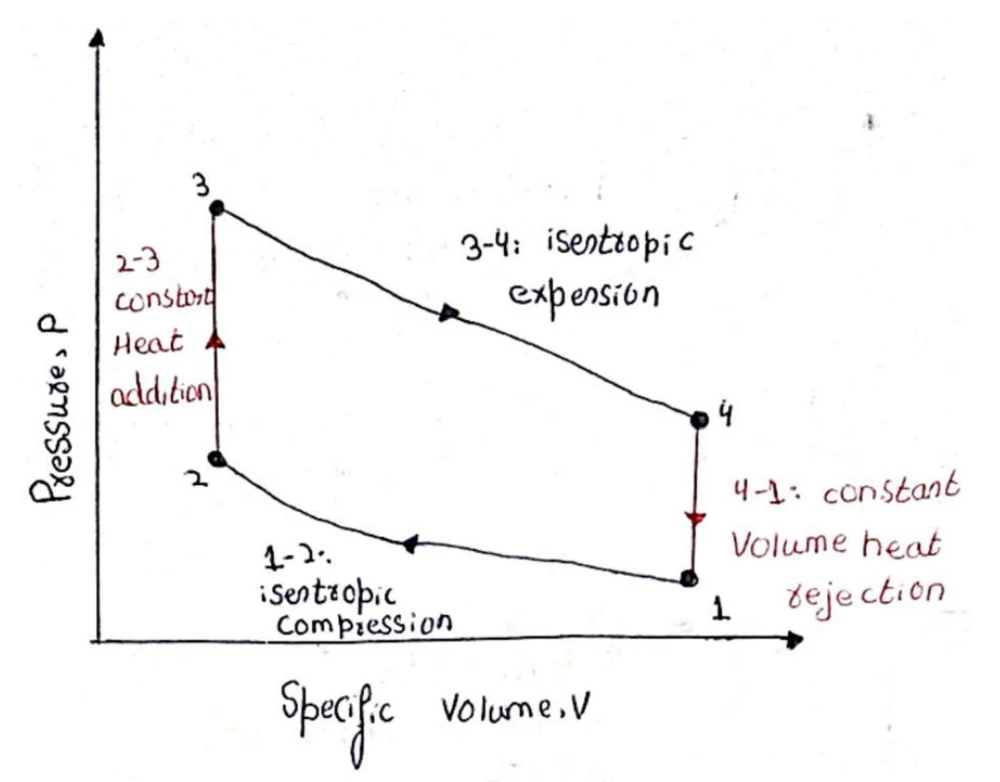 Pressure, P
3
3-4: isentropic
expension
2-3
constant
Heat
addition
4
2
4-1: constant
Volume heat
rejection
1-2:
isentropic
compression
1
Specific Volume, V